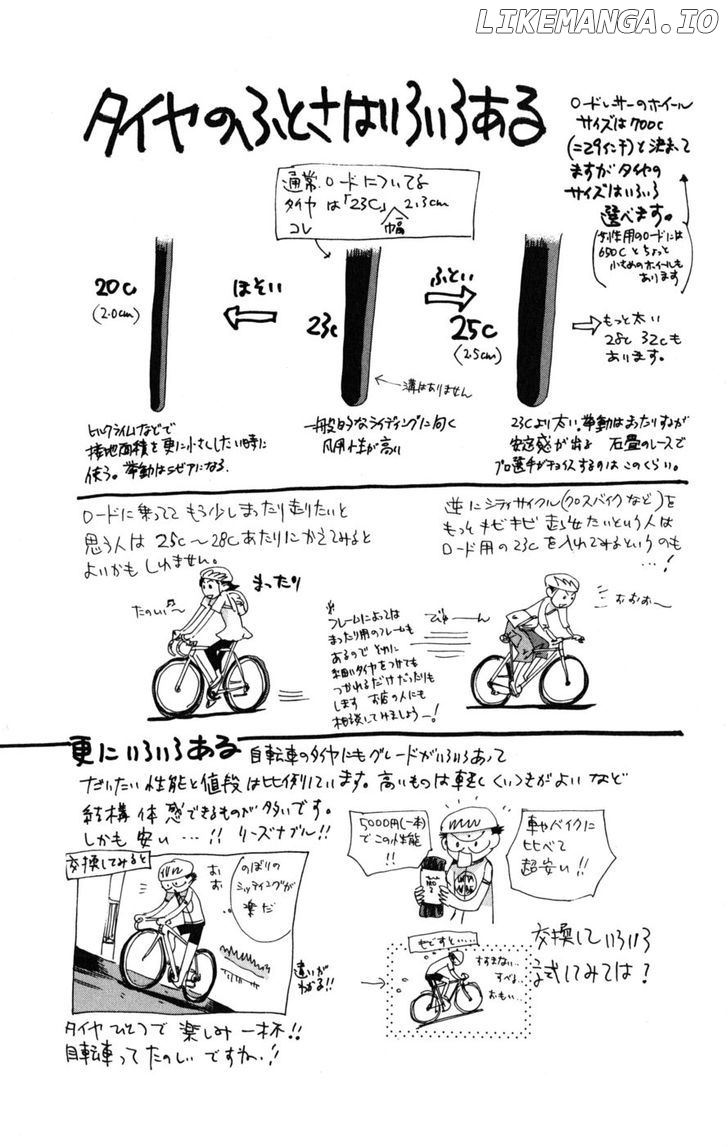 LIKEMANGA.IO
タイヤのふとさはいろいろある
ロードレーサーのホイール
サイズは700c
(=29インチ)と決まって
ますがタイヤの
サイズはいろいろ
選べます。
女性用のロードには
650Cとちょっと
小さめのホイールも
あります
通常ロードについてる
タイヤは「23C」2.3cm
コレ
幅
20c
(2.0cm)
ほそい
23c
ふとい
25c
(2.5cm)
もっと太い
28c 32cも
あります。
溝はありません
ヒルクライムなどで
接地面積を更に小さくしたい時に
使う。挙動はシビアになる。
一般的なライディングに向く
汎用性が高い
23cより太い。挙動はまったりするが
安定感が出る 石畳のレースで
プロ選手がチョイスするのはこのくらい。
ロードに乗ってて もう少しまったり走りたいと
思う人は 25c〜28cあたりにかえてみると
よいかもしれません。
まったり
たのしい〜♪
逆にシティサイクル(クロスバイクなど)を
もっとキビキビ走らせたいという人は
ロード用の23cを入れてみるというのも
…!
おおお〜
びゅーん
※フレームによっては
まったり用のフレームも
あるので とくに
細いタイヤをつけても
つかれるだけだったりも
します お店の人にも
相談してみましょうー!
更にいろいろある 自転車のタイヤにもグレードがいろいろあって
だいたい性能と値段は比例しています。高いものは軽くくいつきがよいなど
結構体感できるものが多いです。
しかも安い…!! リーズナブル!!
交換してみると
おおお
のぼりの
シッティングが
楽だ
違いが
わかる!!
5000円(一本)
でこの性能
!!
車やバイクに
比べて
超安い!!
すすまない…
すべる…
おもい…
交換していろいろ
試してみては?
タイヤひとつで楽しみ一杯!!
自転車ってたのしいですねー!